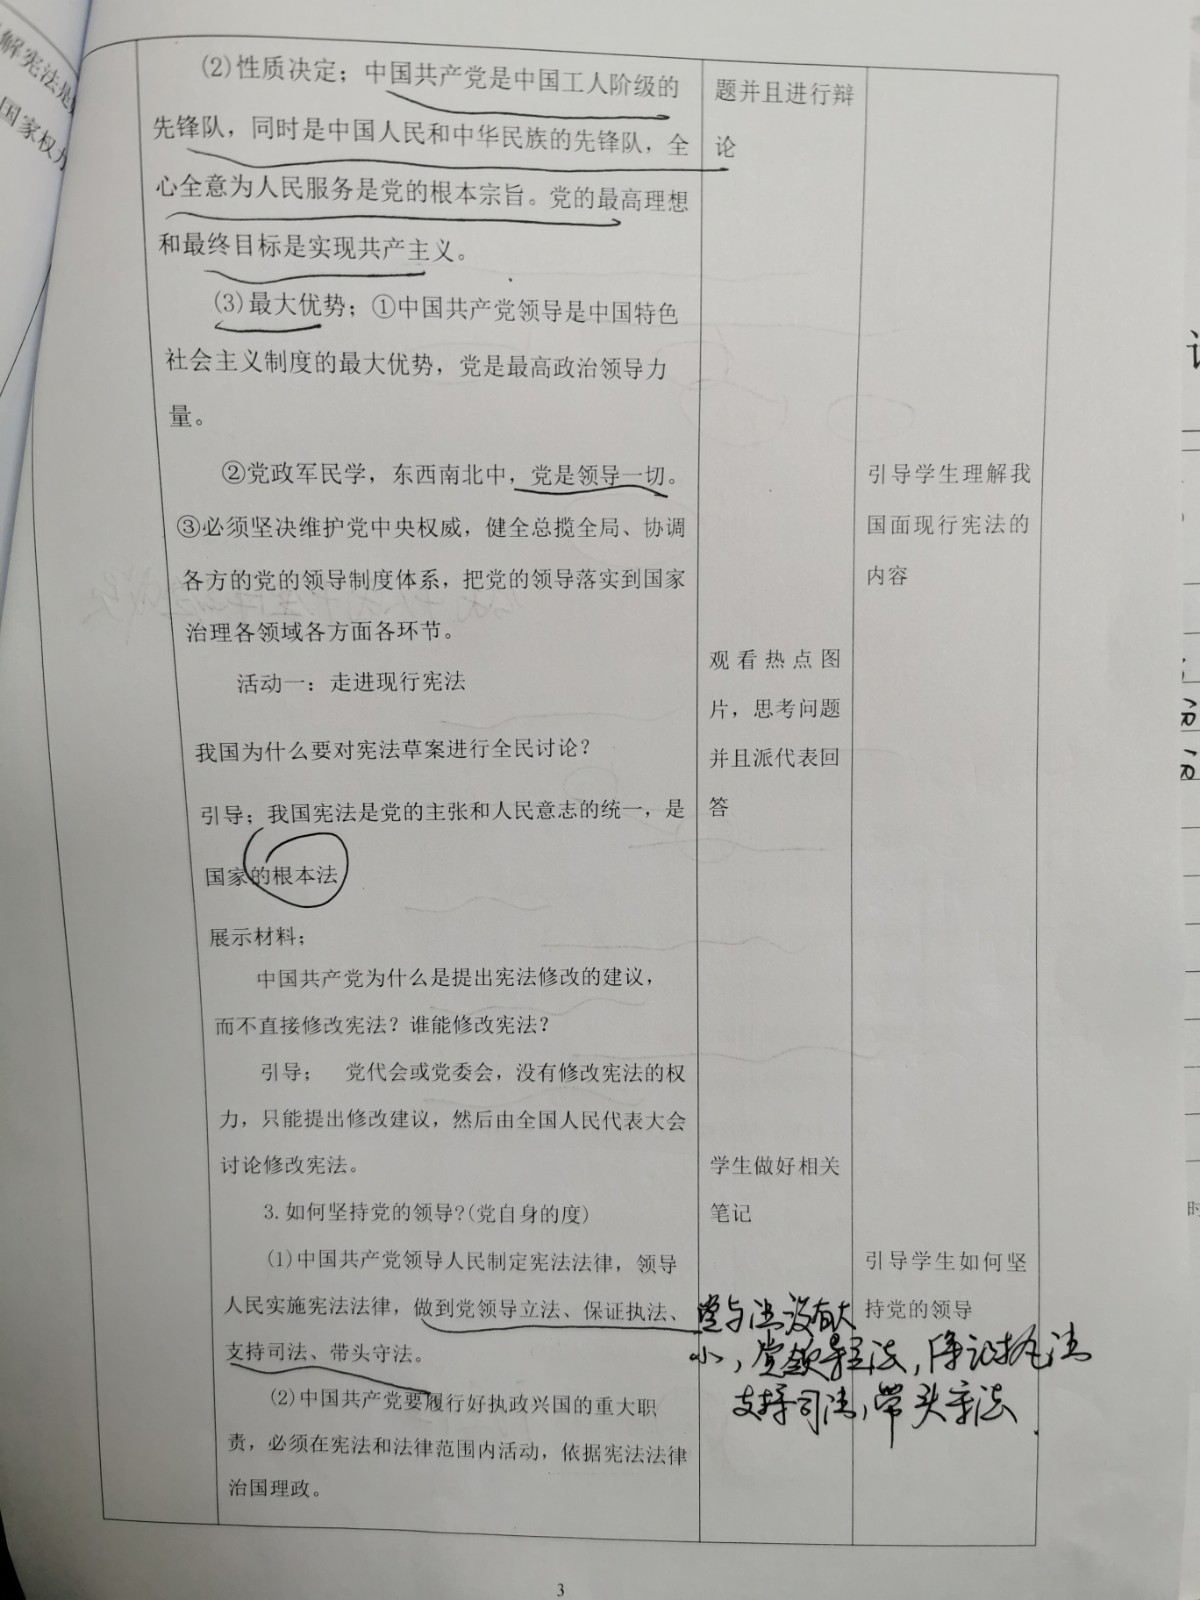 解宪法是
国家权力
(2)性质决定；中国共产党是中国工人阶级的
先锋队，同时是中国人民和中华民族的先锋队，全
心全意为人民服务是党的根本宗旨。党的最高理想
和最终目标是实现共产主义。
(3)最大优势；①中国共产党领导是中国特色
社会主义制度的最大优势，党是最高政治领导力
量。
②党政军民学，东西南北中，党是领导一切。
③必须坚决维护党中央权威，健全总揽全局、协调
各方的党的领导制度体系，把党的领导落实到国家
治理各领域各方面各环节。
活动一：走进现行宪法
我国为什么要对宪法草案进行全民讨论？
引导；我国宪法是党的主张和人民意志的统一，是
国家的根本法
展示材料；
中国共产党为什么是提出宪法修改的建议，
而不直接修改宪法？谁能修改宪法？
引导； 党代会或党委会，没有修改宪法的权
力，只能提出修改建议，然后由全国人民代表大会
讨论修改宪法。
3.如何坚持党的领导?(党自身的度)
(1)中国共产党领导人民制定宪法法律，领导
人民实施宪法法律，做到党领导立法、保证执法、
支持司法、带头守法。
(2)中国共产党要履行好执政兴国的重大职
责，必须在宪法和法律范围内活动，依据宪法法律
治国理政。
题并且进行辩
论
观看热点图
片，思考问题
并且派代表回
答
学生做好相关
笔记
引导学生理解我
国面现行宪法的
内容
引导学生如何坚
持党的领导
党与法没有大
小，党领导立法，保证执法
支持司法，带头守法.
3
时